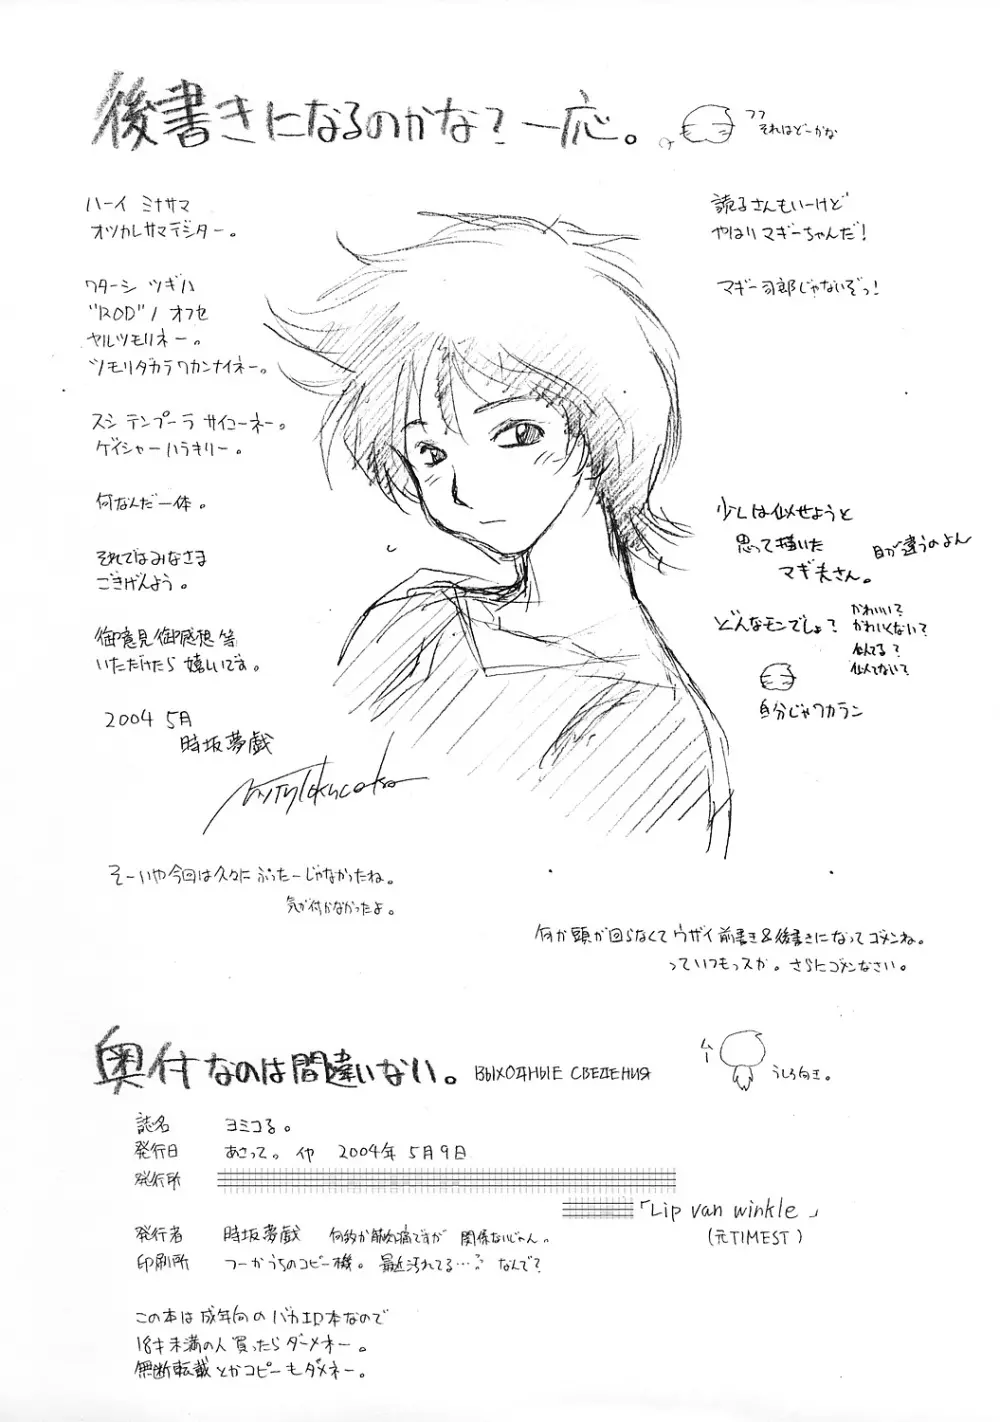 後書きになるのかな？一応。
フフ
それはどーかな
ハーイ ミナサマ
オツカレサマデシター。
ワターシ ツギハ
"ROD"ノ オフセ
ヤルツモリネー。
ツモリダカラワカンナイネー。
スシ テンプーラ サイコーネー。
ゲイシャーハラキリー。
何なんだ一体。
それではみなさま
ごきげんよう。
御意見御感想等
いただけたら嬉しいです。
2004 5月
時坂夢戯
読子さんもいーけど
やはりマギーちゃんだ！
マギー司郎じゃないぞっ！
少しは似せようと
思って描いた
マギ夫さん。
目が違うのよん
どんなモンでしょ？
かわいい？
かわいくない？
似てる？
似てない？
自分じゃワカラン
そーいや今回は久々に ぷったーじゃなかったね。
気が付かなかったよ。
何か頭が回らなくてウザイ前書き&後書きになってゴメンね。
っていつもっスか。さらにゴメンなさい。
奥付なのは間違いない。 ВЫХОДНЫЕ СВЕДЕНИЯ
ムー
うしろ向き。
誌名 ヨミコる。
発行日 あさって。イヤ 2004年 5月9日
発行所
「Lip van winkle」
(元TIMEST)
発行者 時坂夢戯 何的か筋肉痛ですが 関係ないじゃん。
印刷所 つーかうちのコピー機。最近汚れてる…？ なんで？
この本は成年向のバカエロ本なので
18才未満の人買ったらダーメネー。
無断転載とかコピーもダメネー。